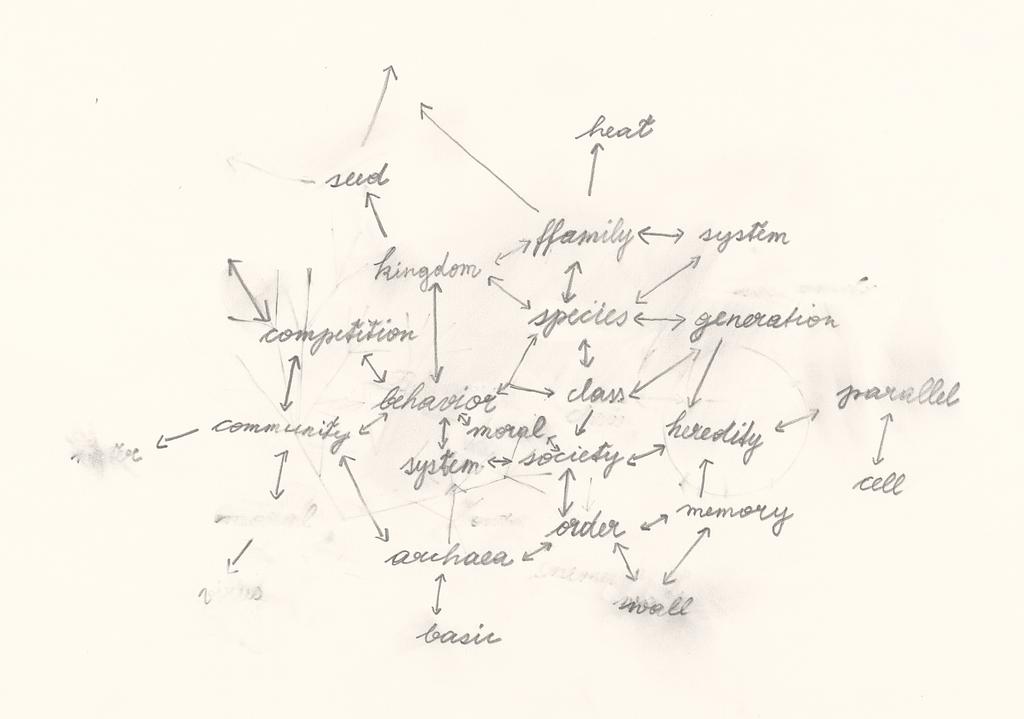 heat
seed
ffamily
system
kingdom
species
generation
competition
class
behavior
parallel
community
moral
heredity
system
society
cell
order
memory
archaea
wall
basic